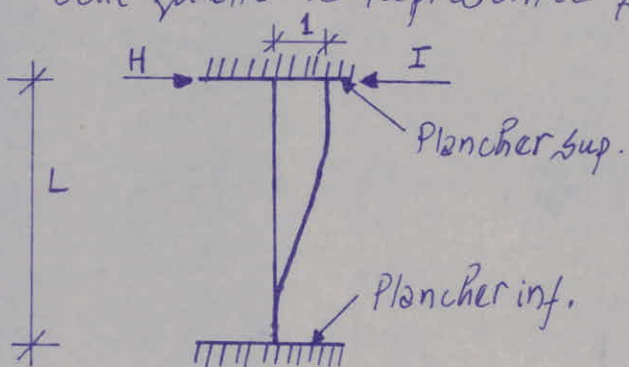 1
H
I
Plancher sup.
L
Plancher inf.